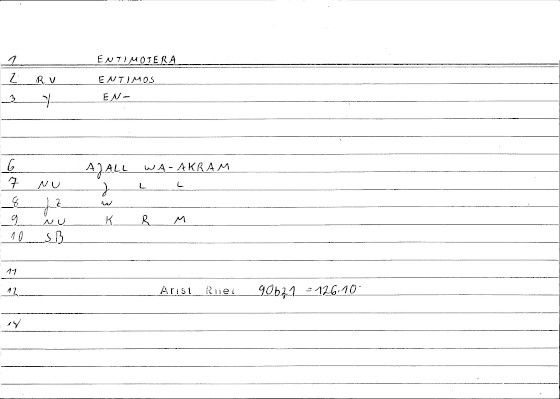 1 ENTIMOTERA
2 RV ENTIMOS
3 Y EN-
6 AJALL WA-AKRAM
7 NU J L L
8 JZ W
9 NU K R M
10 SB
11
12 Arist Rhet 90b21 =126.10
14